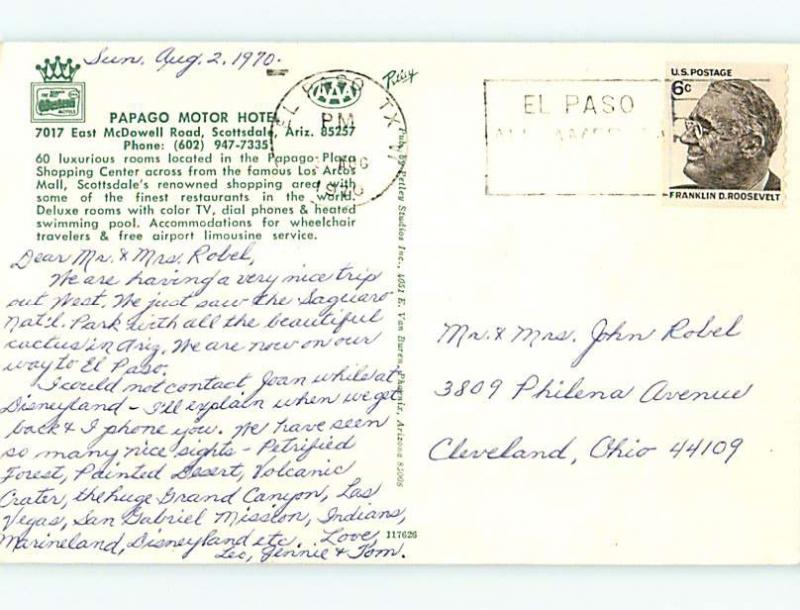 Sun. Aug. 2, 1970.
Best
Western
MOTELS
AAA
Petley
PAPAGO MOTOR HOTEL
7017 East McDowell Road, Scottsdale, Ariz. 85257
Phone: (602) 947-7335
60 luxurious rooms located in the Papago Plaza
Shopping Center across from the famous Los Arcos
Mall, Scottsdale's renowned shopping area with
some of the finest restaurants in the world.
Deluxe rooms with color TV, dial phones & heated
swimming pool. Accommodations for wheelchair
travelers & free airport limousine service.
EL PASO TX
PM
AUG
EL PASO
U.S. POSTAGE
6c
FRANKLIN D. ROOSEVELT
Dear Mr. & Mrs. Robel,
We are having a very nice trip
out West. We just saw the Saguaro
Nat'l. Park with all the beautiful
cactus in Ariz. We are now on our
way to El Paso.
I could not contact Joan while at
Disneyland – I'll explain when we get
back & I phone you. We have seen
so many nice sights – Petrified
Forest, Painted Desert, Volcanic
Crater, the huge Grand Canyon, Las
Vegas, San Gabriel Mission, Indians,
Marineland, Disneyland etc. Love,
Leo, Jennie & Tom.
Pub. by Petley Studios Inc., 4051 E. Van Buren, Phoenix, Arizona 85008
117626
Mr. & Mrs. John Robel
3809 Philena Avenue
Cleveland, Ohio 44109